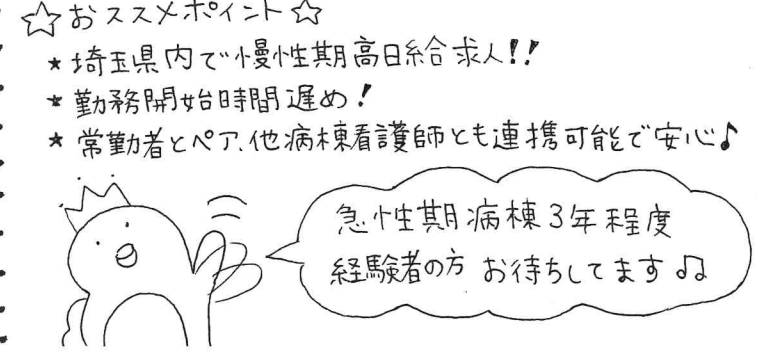 ☆おススメポイント☆
★埼玉県内で慢性期高日給求人!!
★勤務開始時間遅め!
★常勤者とペア、他病棟看護師とも連携可能で安心♪
急性期病棟3年程度
経験者の方 お待ちしてます♫